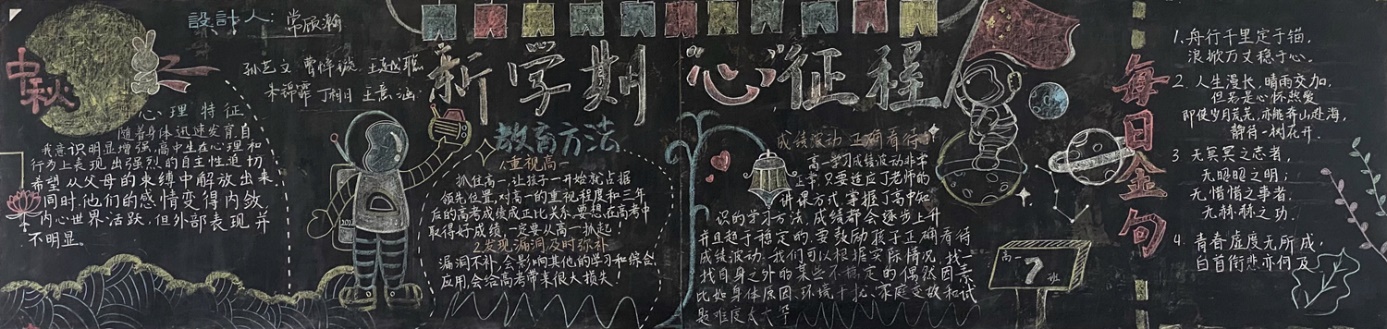 設計人：常欣瀚
中秋
新学期 “心”征程
心理特征
随着身体迅速发育，自
我意识明显增强，高中生在心理和
行为上表现出强烈的自主性，迫切
希望从父母的束缚中解放出来。
同时，他们的感情变得内敛，
内心世界活跃，但外部表现并
不明显。
教育方法
1.重视高一
抓住高一，让孩子一开始就占据
领先位置，对高一的重视程度和三年
后的高考成绩成正比关系，要想在高考中
取得好成绩，一定要从高一抓起！
2.发现漏洞及时弥补
漏洞不补，会影响其他的学习和综合
应用，会给高考带来很大损失！
成绩波动 正确看待
高一学习成绩波动非常
正常，只要适应了老师的
讲课方式，掌握了高中知
识的学习方法，成绩都会逐步上升
并且趋于稳定的。要鼓励孩子正确看待
成绩波动。我们可以根据实际情况，找一
找自身之外的某些不稳定的偶然因素，
比如身体原因、环境干扰、家庭变故和试
题难度太大等
高一7班
每日金句
1.舟行千里定于锚，
浪掀万丈稳于心。
2.人生漫长，晴雨交加，
但若是心怀热爱，
即使岁月荒芜，亦能奔山赴海，
静待一树花开。
3 无冥冥之志者，
无昭昭之明；
无惛惛之事者，
无赫赫之功。
4. 青春虚度无所成，
白首衔悲亦何及